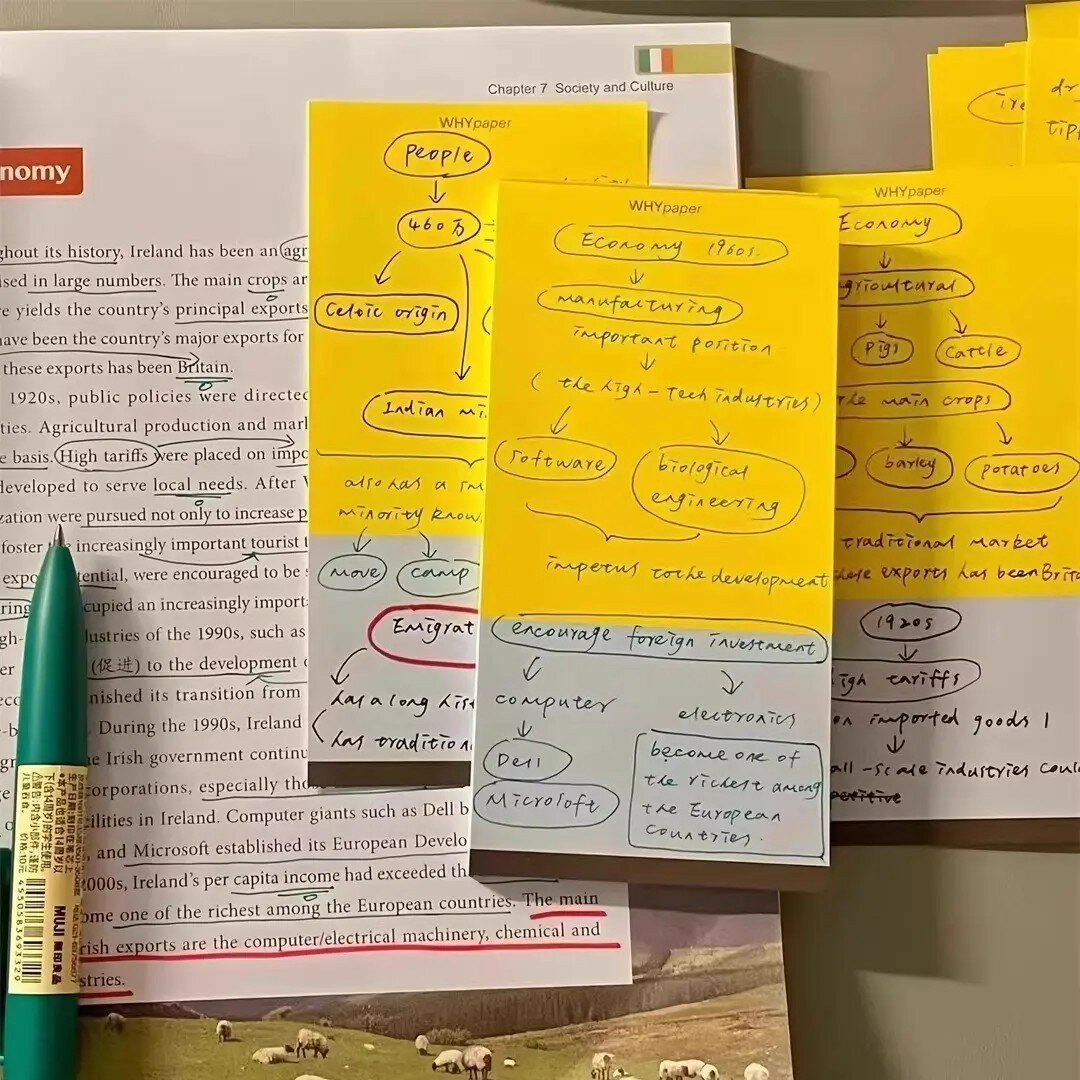 Chapter 7 Society and Culture
nomy
ghout its history, Ireland has been an agr
ised in large numbers. The main crops ar
e yields the country's principal exports
have been the country's major exports for
these exports has been Britain.
1920s, public policies were directed
ties. Agricultural production and mark
e basis. High tariffs were placed on impo
developed to serve local needs. After
zation were pursued not only to increase p
foster increasingly important tourist
expo tential, were encouraged to be
ring cupied an increasingly import
gh- lustries of the 1990s, such as
er (促进) to the development
ec nished its transition from
-b . During the 1990s, Ireland
gr e Irish government continu
ge orporations, especially tho
o ilities in Ireland. Computer giants such as Dell
, and Microsoft established its European Develo
2000s, Ireland's per capita income had exceeded th
ome one of the richest among the European countries. The main
rish exports are the computer/electrical machinery, chemical and
stries.
WHYpaper
people
460万
Celtic origin
Indian mi
also has a
minority know
move
camp
Emigrat
has a long hist
has tradition
WHYpaper
Economy 1960s.
manufacturing
important porition
(the high-tech industries)
software
biological
engineering
impetus to the development
encourage foreign investment
computer
electronics
Dell
Microloft
become one of
the richest among
the European
countries.
WHYpaper
Economy
gricultural
Pigs
Cattle
the main crops
barley
potatoes
traditional market
these exports has been Brita
1920s
igh tariffs
on imported goods
all-scale industries coul
ire
dr
tipp
MUJI 無印良品
价格:10元
4550583693329